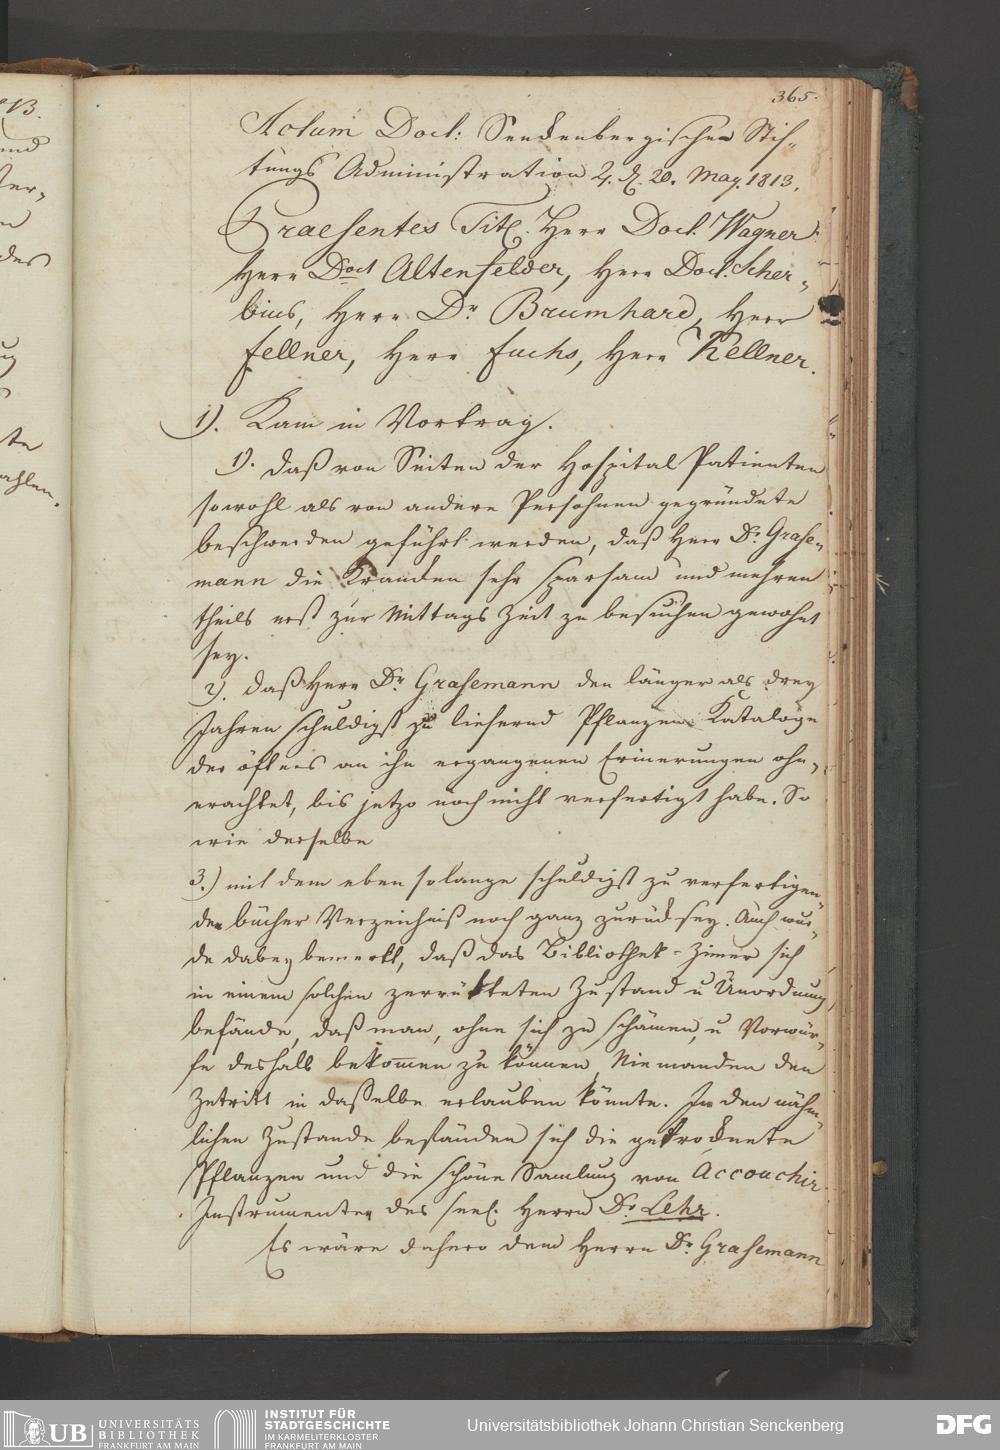 365.
Actum Doct: Senckenbergischen Stif„
tungs Administration 4. d. 20. May. 1813.
Praesentes Titl. Herr Doct. Wagner
Herr Doct Altenfelder, Herr Doct. Scher„
bius, Herr Dr Brumhard, Herr
Fellner, Herr Fuchs, Herr Kellner.
1). Kam in Vortrag.
1). daß von Seiten der Hospital Patienten
sowohl als von andere Persohnen gegründete
beschwerden geführt werden, daß Herr Dr. Grase„
mann die Krancken sehr sparsam und mehren
theils erst zur Mittags Zeit zu besuchen gewohnt
sey.
2). daß Herr Dr. Grasemann den länger als drey
Jahren schuldigst zu liefernd Pflanzen Kataloge
der öfteres an ihn ergangenen Erinerungen ohn„
erachtet, bis jetzo noch nicht verfertigt habe. So
wie derselbe
3.) mit dem eben solange schuldigst zu verfertigen„
den bücher Verzeichniß noch ganz zurück sey. Auch wur„
de dabey bemerkt, daß das Bibliothek-Zimer sich
in einem solchen zerrütteten Zustand u Unordnung
befände, daß man, ohne sich zu schämen, u Vorwür„
fe deshalb bekommen zu können, Niemanden den
Zutritt in dasselbe erlauben könnte. In den nähm„
lichen Zustande befänden sich die getrocknete
Pflanzen und die schöne Samlung von Accouchir
Instrumenten des seel. Herrn Dr. Lehr.
Es wäre dahero dem Herrn Dr. Grasemann
UB UNIVERSITÄTS
BIBLIOTHEK
FRANKFURT AM MAIN
INSTITUT FÜR
STADTGESCHICHTE
IM KARMELITERKLOSTER
FRANKFURT AM MAIN
Universitätsbibliothek Johann Christian Senckenberg
DFG